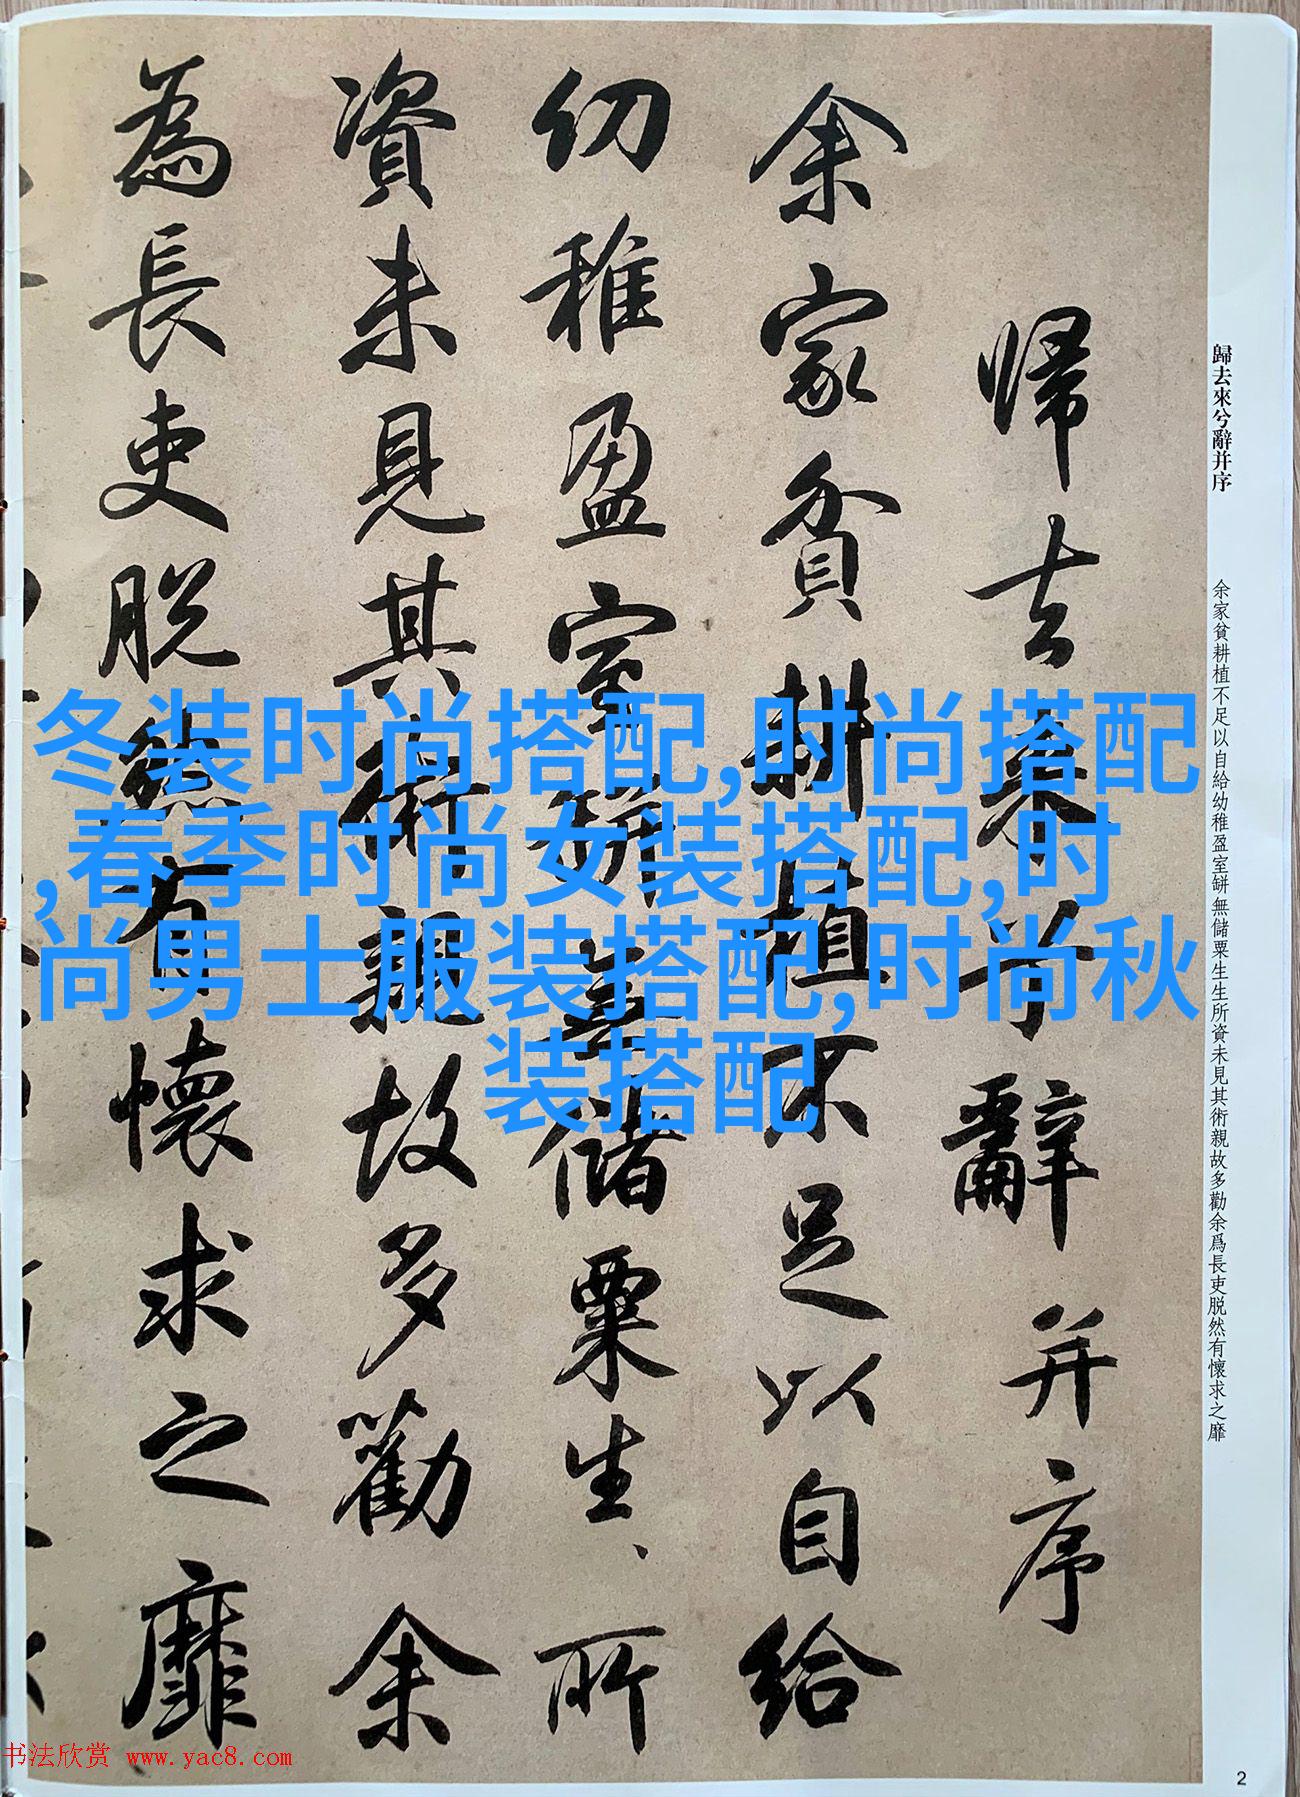 歸去來兮辭并序
余家貧耕植不足以自給幼稚盈室缾無儲粟生生所資未見其術親故多勸余爲長吏脱然有懷求之靡
歸去來兮辭并序
余家貧耕植不足以自給
幼稚盈室缾無儲粟生、所
資未見其術親故多勸余
為長吏脱然有懷求之靡
冬装时尚搭配,时尚搭配
,春季时尚女装搭配,时
尚男士服装搭配,时尚秋
装搭配
书法欣赏 www.yac8.com
2